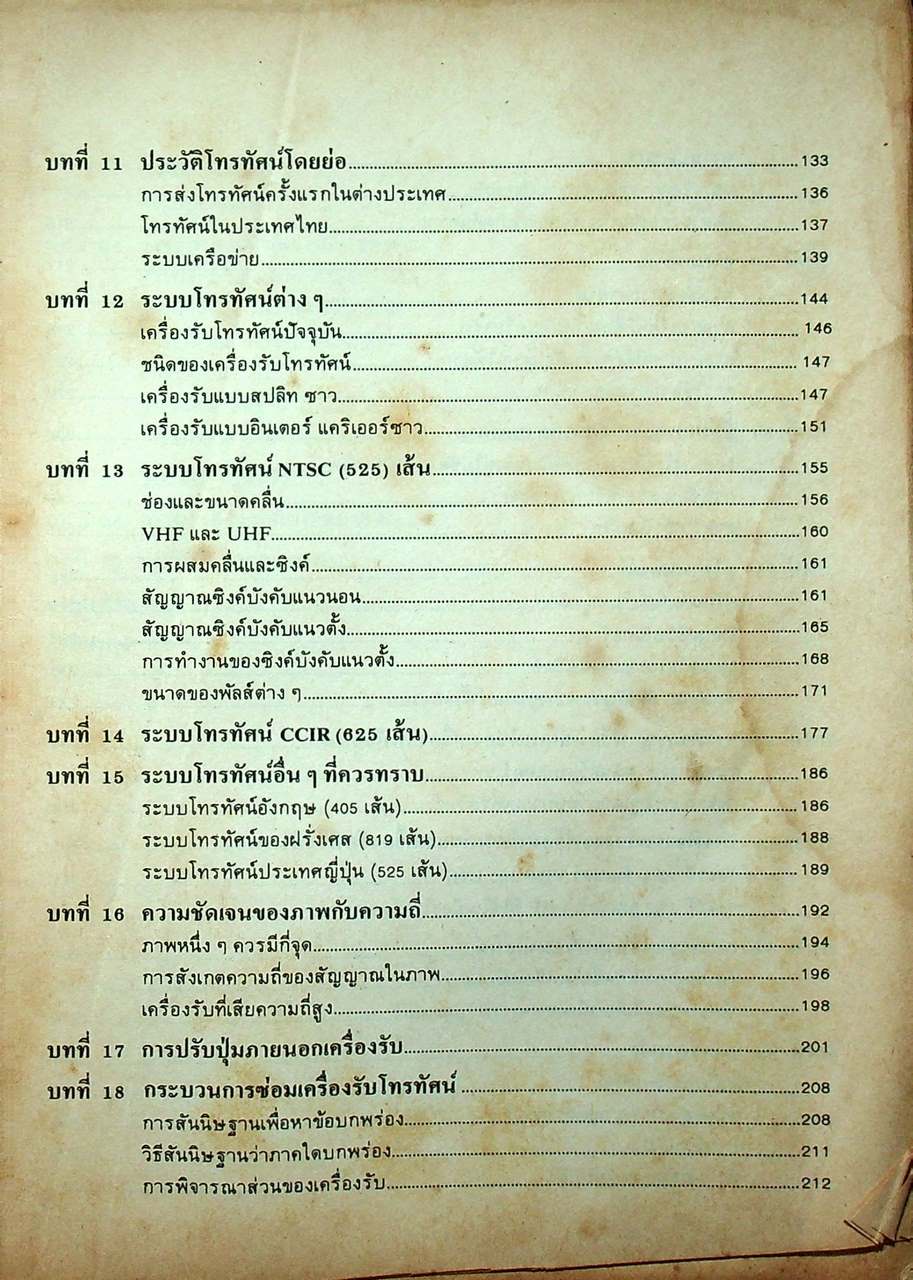 บทที่ 11 ประวัติโทรทัศน์โดยย่อ 133
การส่งโทรทัศน์ครั้งแรกในต่างประเทศ 136
โทรทัศน์ในประเทศไทย 137
ระบบเครือข่าย 139
บทที่ 12 ระบบโทรทัศน์ต่าง ๆ 144
เครื่องรับโทรทัศน์ปัจจุบัน 146
ชนิดของเครื่องรับโทรทัศน์ 147
เครื่องรับแบบสปลิท ซาว 147
เครื่องรับแบบอินเตอร์ แคริเออร์ซาว 151
บทที่ 13 ระบบโทรทัศน์ NTSC (525) เส้น 155
ช่องและขนาดคลื่น 156
VHF และ UHF 160
การผสมคลื่นและซิงค์ 161
สัญญาณซิงค์บังคับแนวนอน 161
สัญญาณซิงค์บังคับแนวตั้ง 165
การทำงานของซิงค์บังคับแนวตั้ง 168
ขนาดของพัลส์ต่าง ๆ 171
บทที่ 14 ระบบโทรทัศน์ CCIR (625 เส้น) 177
บทที่ 15 ระบบโทรทัศน์อื่น ๆ ที่ควรทราบ 186
ระบบโทรทัศน์อังกฤษ (405 เส้น) 186
ระบบโทรทัศน์ของฝรั่งเศส (819 เส้น) 188
ระบบโทรทัศน์ประเทศญี่ปุ่น (525 เส้น) 189
บทที่ 16 ความชัดเจนของภาพกับความถี่ 192
ภาพหนึ่ง ๆ ควรมีกี่จุด 194
การสังเกตความถี่ของสัญญาณในภาพ 196
เครื่องรับที่เสียความถี่สูง 198
บทที่ 17 การปรับปุ่มภายนอกเครื่องรับ 201
บทที่ 18 กระบวนการซ่อมเครื่องรับโทรทัศน์ 208
การสันนิษฐานเพื่อหาข้อบกพร่อง 208
วิธีสันนิษฐานว่าภาคใดบกพร่อง 211
การพิจารณาส่วนของเครื่องรับ 212